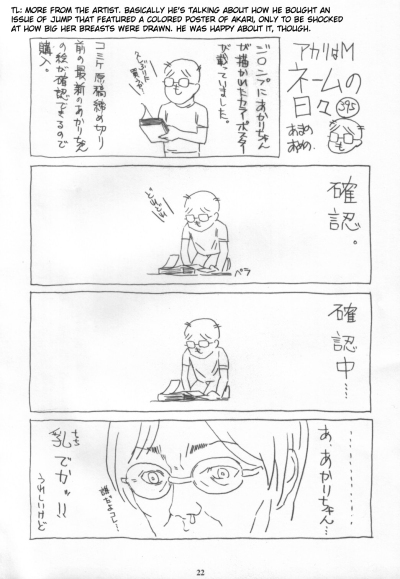 TL: MORE FROM THE ARTIST. BASICALLY HE'S TALKING ABOUT HOW HE BOUGHT AN
ISSUE OF JUMP THAT FEATURED A COLORED POSTER OF AKARI, ONLY TO BE SHOCKED
AT HOW BIG HER BREASTS WERE DRAWN. HE WAS HAPPY ABOUT IT, THOUGH.
アカリはM
ネームの
日々
395
ジ○ンプにあかりちゃん
が描かれたカラーポスター
が載っていました。
久しぶりに
買った
コミケ原稿締め切り
前の最新のあかりちゃん
の絵が確認できるので
購入。
確認。
どれどれ
ペラ
確認中…
あ、あかりちゃん…
誰だよコレ…
乳でかッ!!
ちち
うれしいけど
22